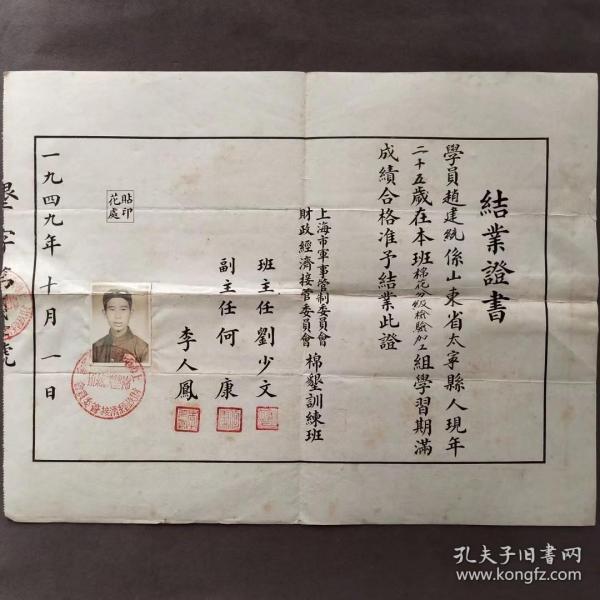 結業證書
學員趙建統係山東省太寧縣人現年
二十五歲在本班棉花分級檢驗加工組學習期滿
成績合格准予結業此證
上海市軍事管制委員會
財政經濟接管委員會
棉墾訓練班
班主任劉少文
副主任何康
李人鳳
貼印
花處
一九四九年十月一日
墾字第
號
孔夫子旧书网
www.kongfz.com